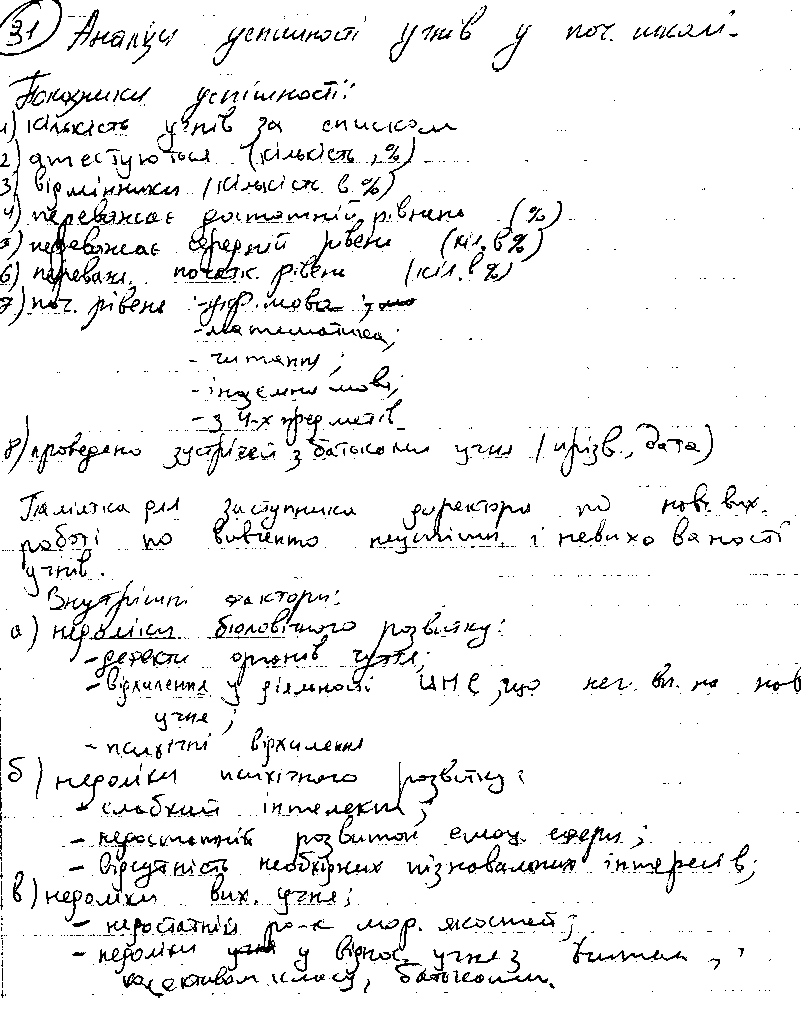 31 Аналіз успішності учнів у поч. школі.
Показники успішності:
1) кількість учнів за списком
2) атестуються (кількість, %)
3) відмінники (кількість в %)
4) переважає достатній рівень (%)
5) переважає середній рівень (кіл. в %)
6) переваж. початк. рівень (кіл. в %)
7) поч. рівень - укр. мова;
- математика;
- читання;
- іноземна мова;
- з 4-х предметів
8) проведено зустрічей з батьками учня (прізв., дата)
Памятка для заступника директора по навч. вих.
роботі по вивченню неуспішн. і невихованості
учнів.
Внутрішні фактори:
а) недоліки біологічного розвитку:
- дефекти органів чуття;
- відхилення у діяльності ЦНС, що нег. вп. на нав
учня;
- психічні відхилення
б) недоліки психічного розвитку:
- слабкий інтелект;
- недостатній розвиток емоц. сфери;
- відсутність необхідних пізнавальних інтересів;
в) недоліки вих. учня;
- недостатній ро-к мор. якостей;
- недоліки у віднос. учня з вчител,
колективом класу, батьками.